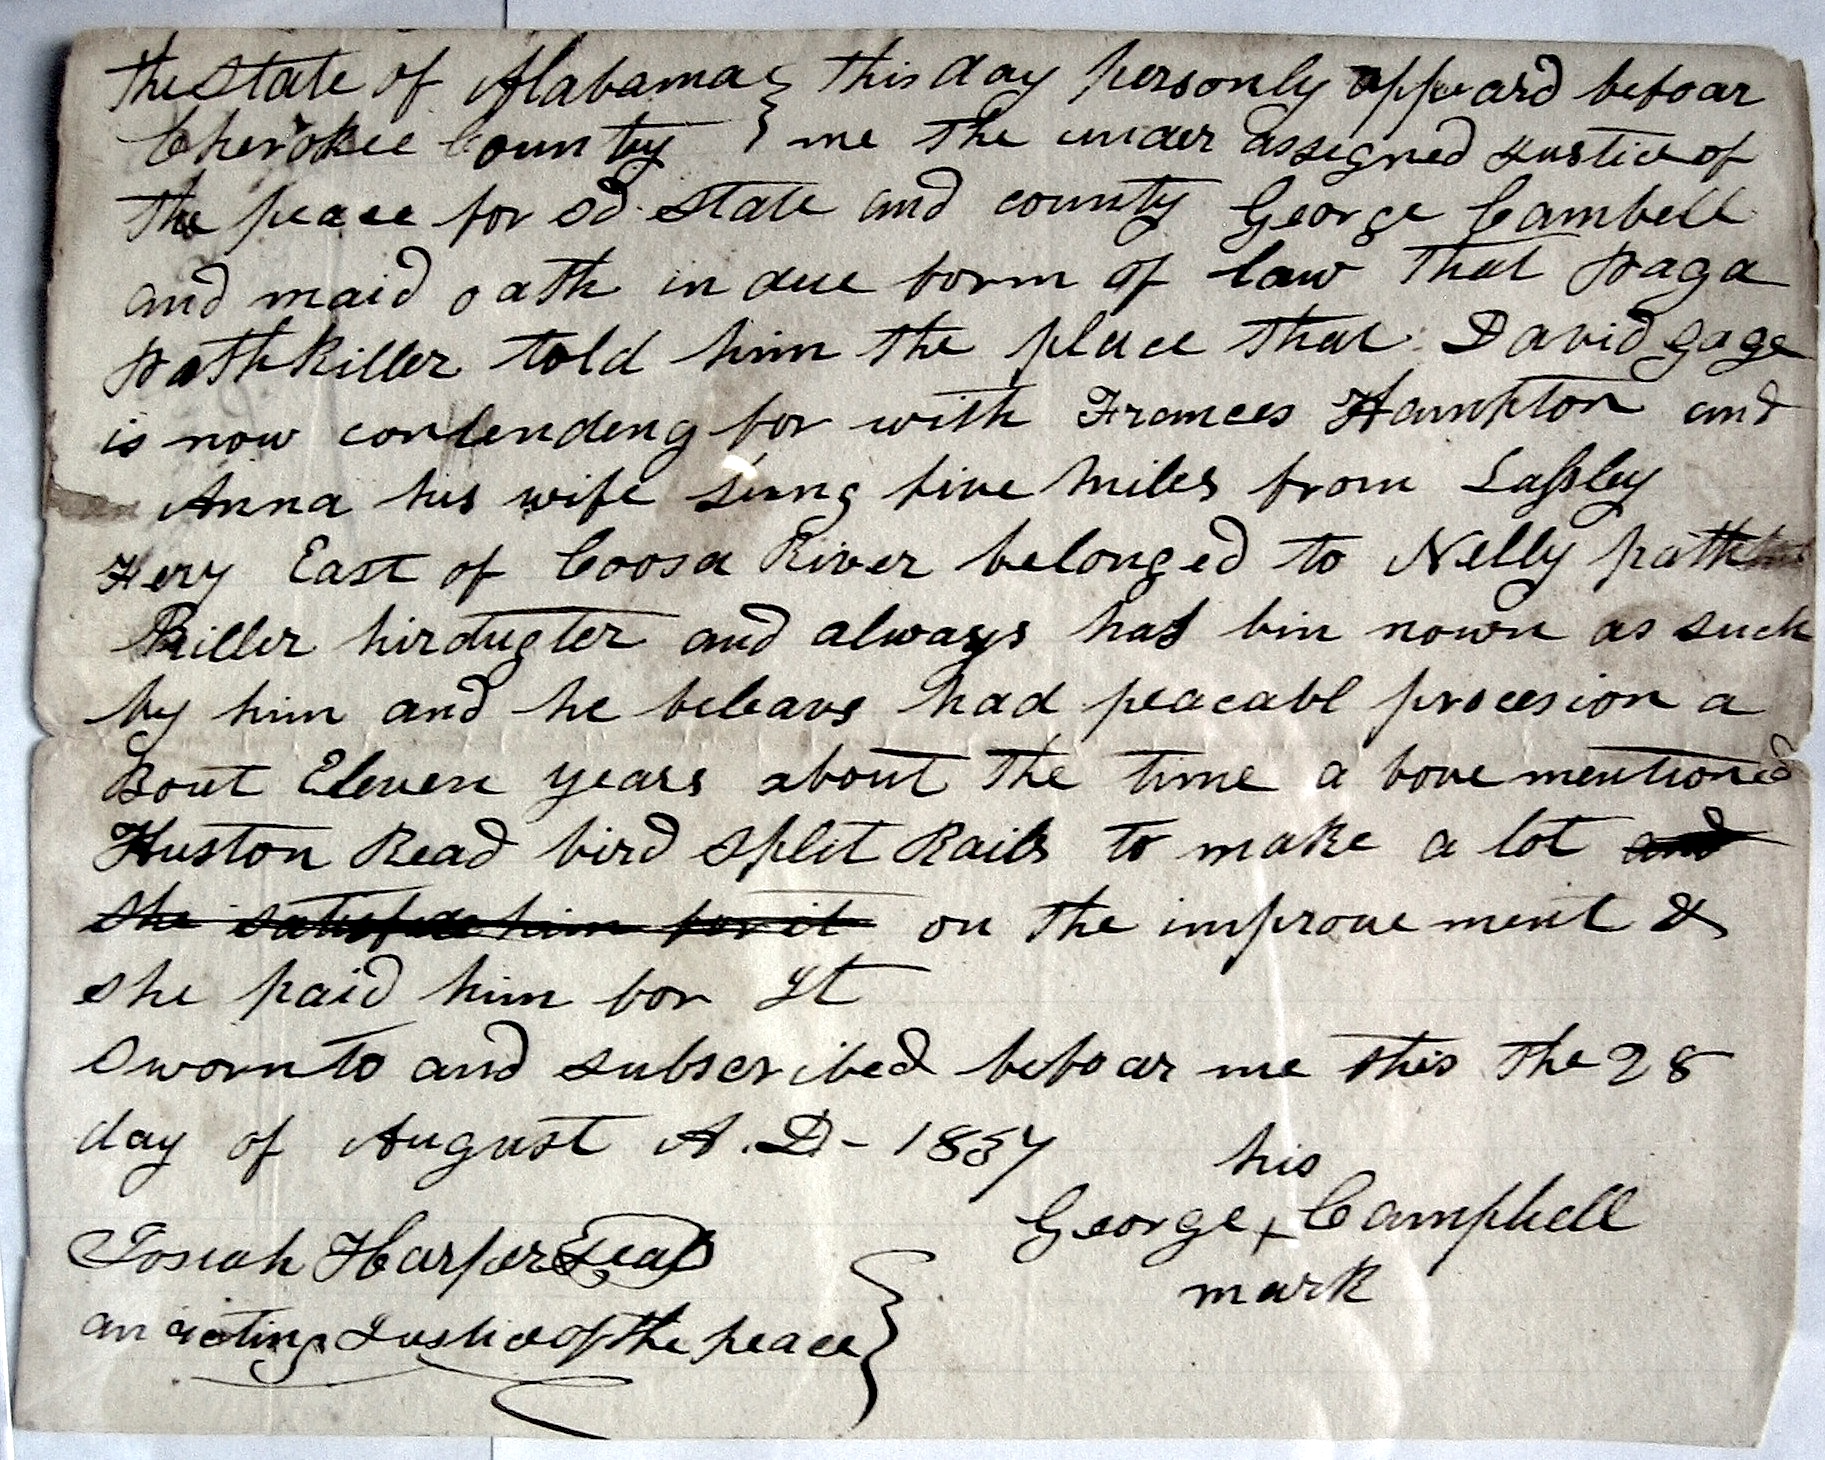 The State of Alabama } This day personly appeard befoar
Cherokee County } me the under assegned Justice of
The peace for sd. State and county George Cambell
and maid oath in due form of law that paga
pathkiller told him the place that David gage
is now contendeng for with Frances Hampton and
Anna his wife sung five miles from Laſsley
Fery East of Coosa River belonged to Nelly path
Killer hir dugter and always has bin nown as such
by him and he beleavs had peacabl procesion a
Bout Eleven years about the time a bove mentioned
Huston Read bird Splet Rails to make a lot and
she satisfide him for it on the improve ment &
she paid him for It
Sworn to and subscribed befoar me this the 28
day of August A.D - 1837
his
George + Campbell
mark
Josiah Harper Seal
an acting Justice of the peace }